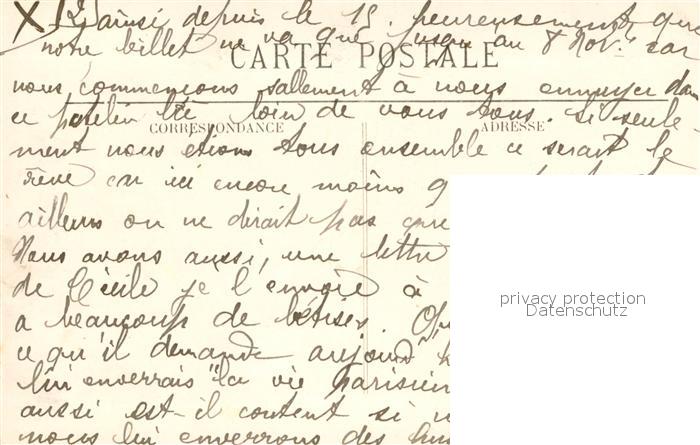 X (2) ainsi depuis le 15. heureusement que
notre billet ne va que jusqu'au 8 Nov. car
CARTE POSTALE
nous commençons salement à nous ennuyer dans
ce patelin loin de vous tous. Si seule
CORRESPONDANCE ADRESSE
ment nous étions tous ensemble ce serait le
rêve car ici encore moins
ailleurs on ne dirait pas que
Nous avons aussi, une lettre
de Cécile je l'envoie à
a beaucoup de bêtises.
ce qu'il demande aujourd'h
lui enverrais "la vie parisien
aussi est-il content si n
nous lui enverrons des
privacy protection
Datenschutz